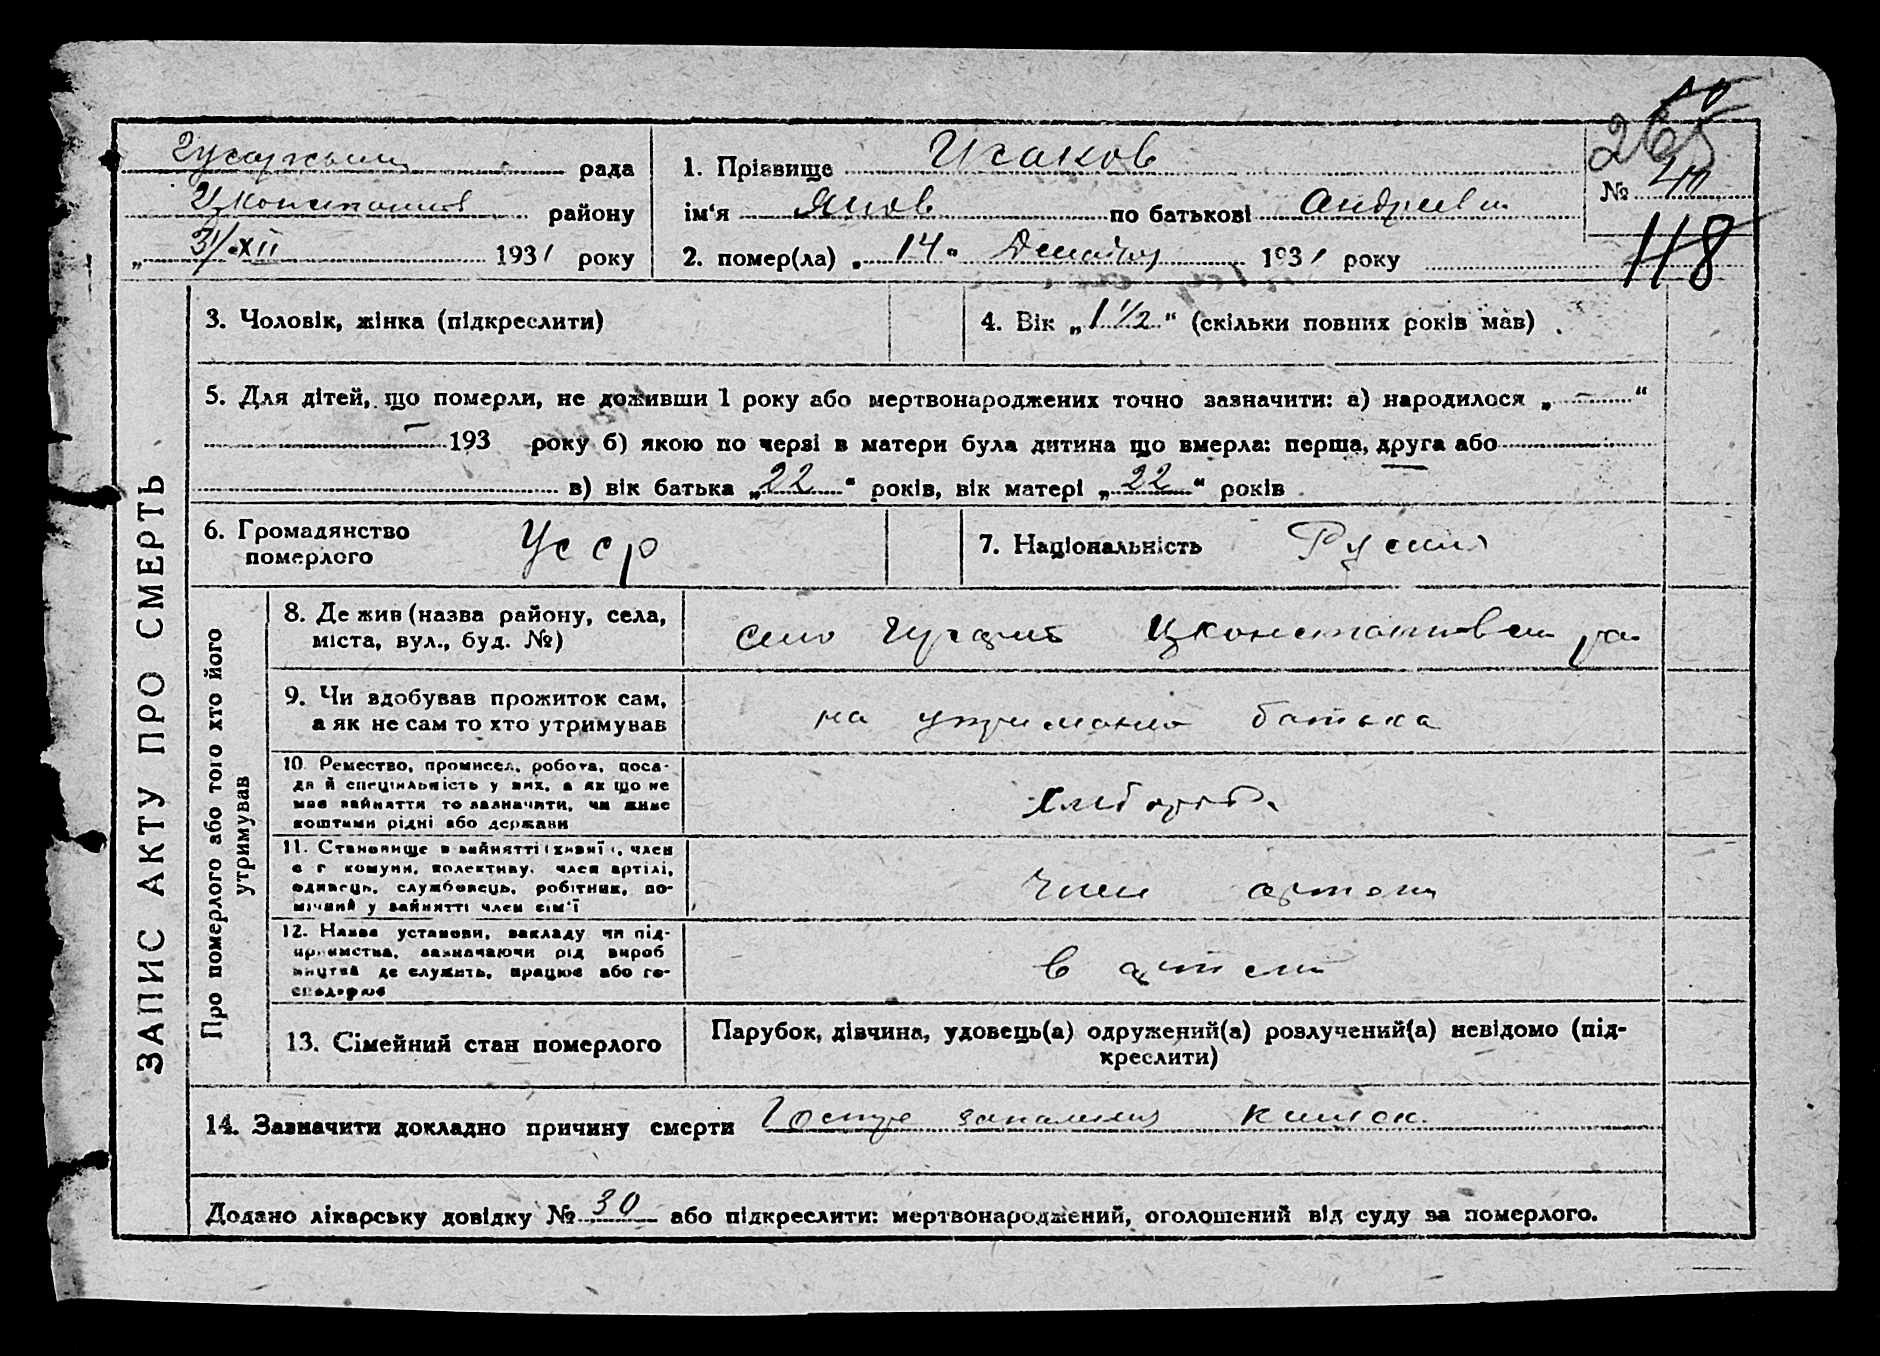 рада
району
„ 31/XII 1931 року
1. Прізвище Исаков
ім‘я Яков по батькові Андреевич
2. помер(ла) „ 14 “ 1931 року
265
№ 40
118
ЗАПИС АКТУ ПРО СМЕРТЬ
3. Чоловік, жінка (підкреслити)
4. Вік „ 1 1/2 “ (скільки повних років мав)
5. Для дітей, що померли, не доживши 1 року або мертвонароджених точно зазначити: а) народилося „ — “
— 193 року б) якою по черзі в матери була дитина що вмерла: перша, друга або
в) вік батька „ 22 “ років, вік матері „ 22 “ років
6. Громадянство
померлого
Усср
7. Національність
Про померлого або того хто його
утримував
8. Де жив (назва району, села,
міста, вул., буд. №)
село
9. Чи здобував прожиток сам,
а як не сам то хто утримував
на утриманю батька
10. Ремество, промисел, робота, поса-
да й спеціяльність у них, а як що не
мав зайняття то зазначити, чи живе
коштами рідні або держави
хлібороб
11. Становище в зайнятті (хазяї), член
с г комуни, колективу, член артілі,
одинець, службовець, робітник, по-
мічний у зайнятті член сім‘ї
член артели
12. Назва установи, закладу чи під-
приємства, зазначаючи рід вироб
ництва де служить, працює або го-
сподарює
в артели
13. Сімейний стан померлого
Парубок, дівчина, удовець(а) одружений(а) розлучений(а) невідомо (під-
креслити)
14. Зазначити докладно причину смерти Гостре запалення кишок.
Додано лікарську довідку № 30 або підкреслити: мертвонароджений, оголошений від суду за померлого.